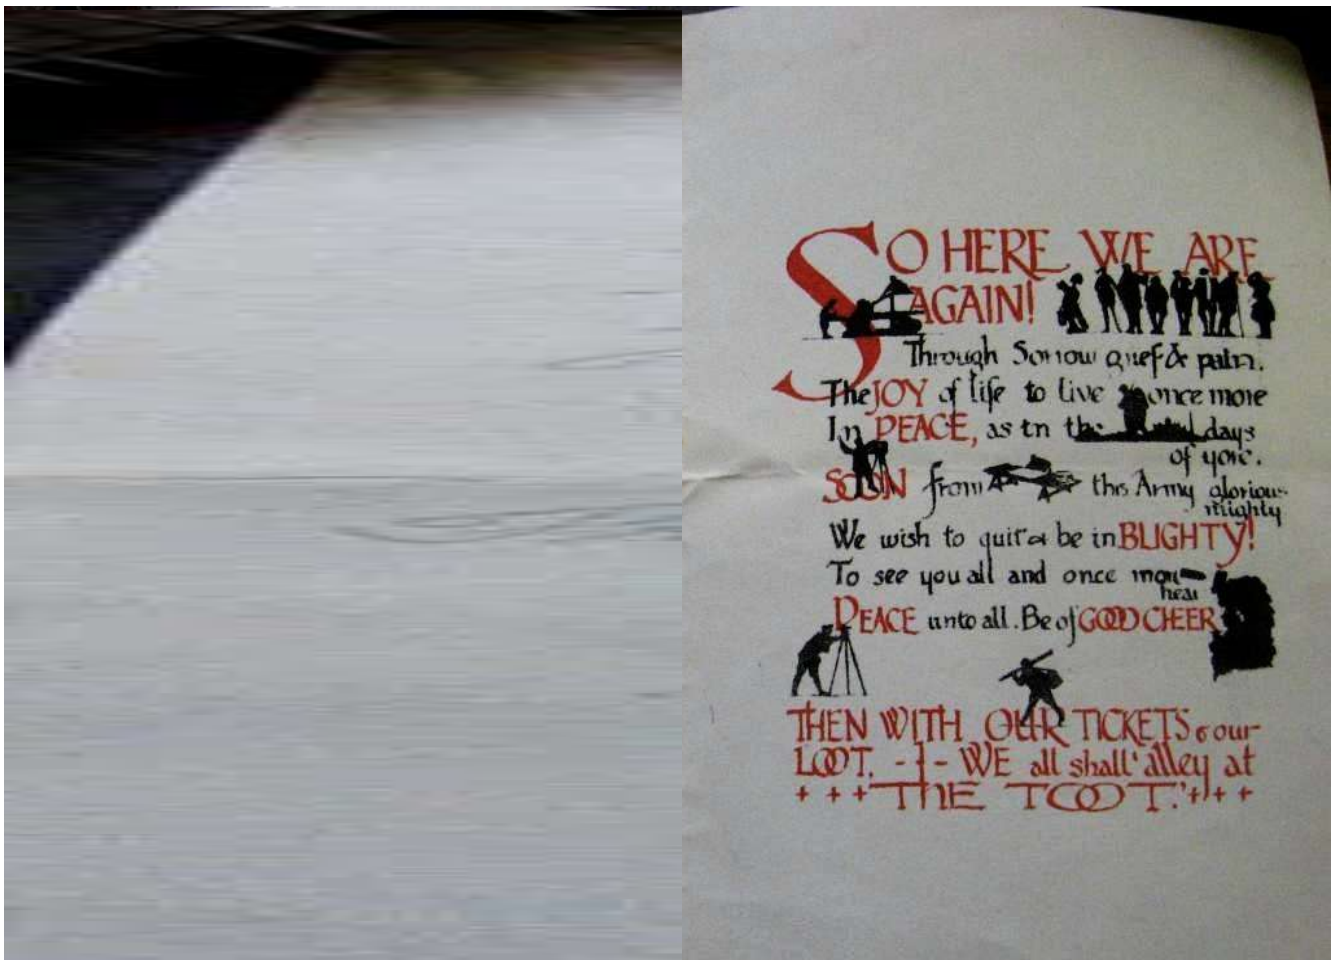 SO HERE WE ARE
AGAIN!
Through Sorrow grief & pain.
The JOY of life to live once more
In PEACE, as in the days
of yore.
SOON from this Army glorious
mighty
We wish to quit & be in BLIGHTY!
To see you all and once more
hear
PEACE unto all. Be of GOOD CHEER
THEN WITH OUR TICKETS & our
LOOT. - ‡ - WE all shall 'alley at
+ + + THE TOOT.' + + +